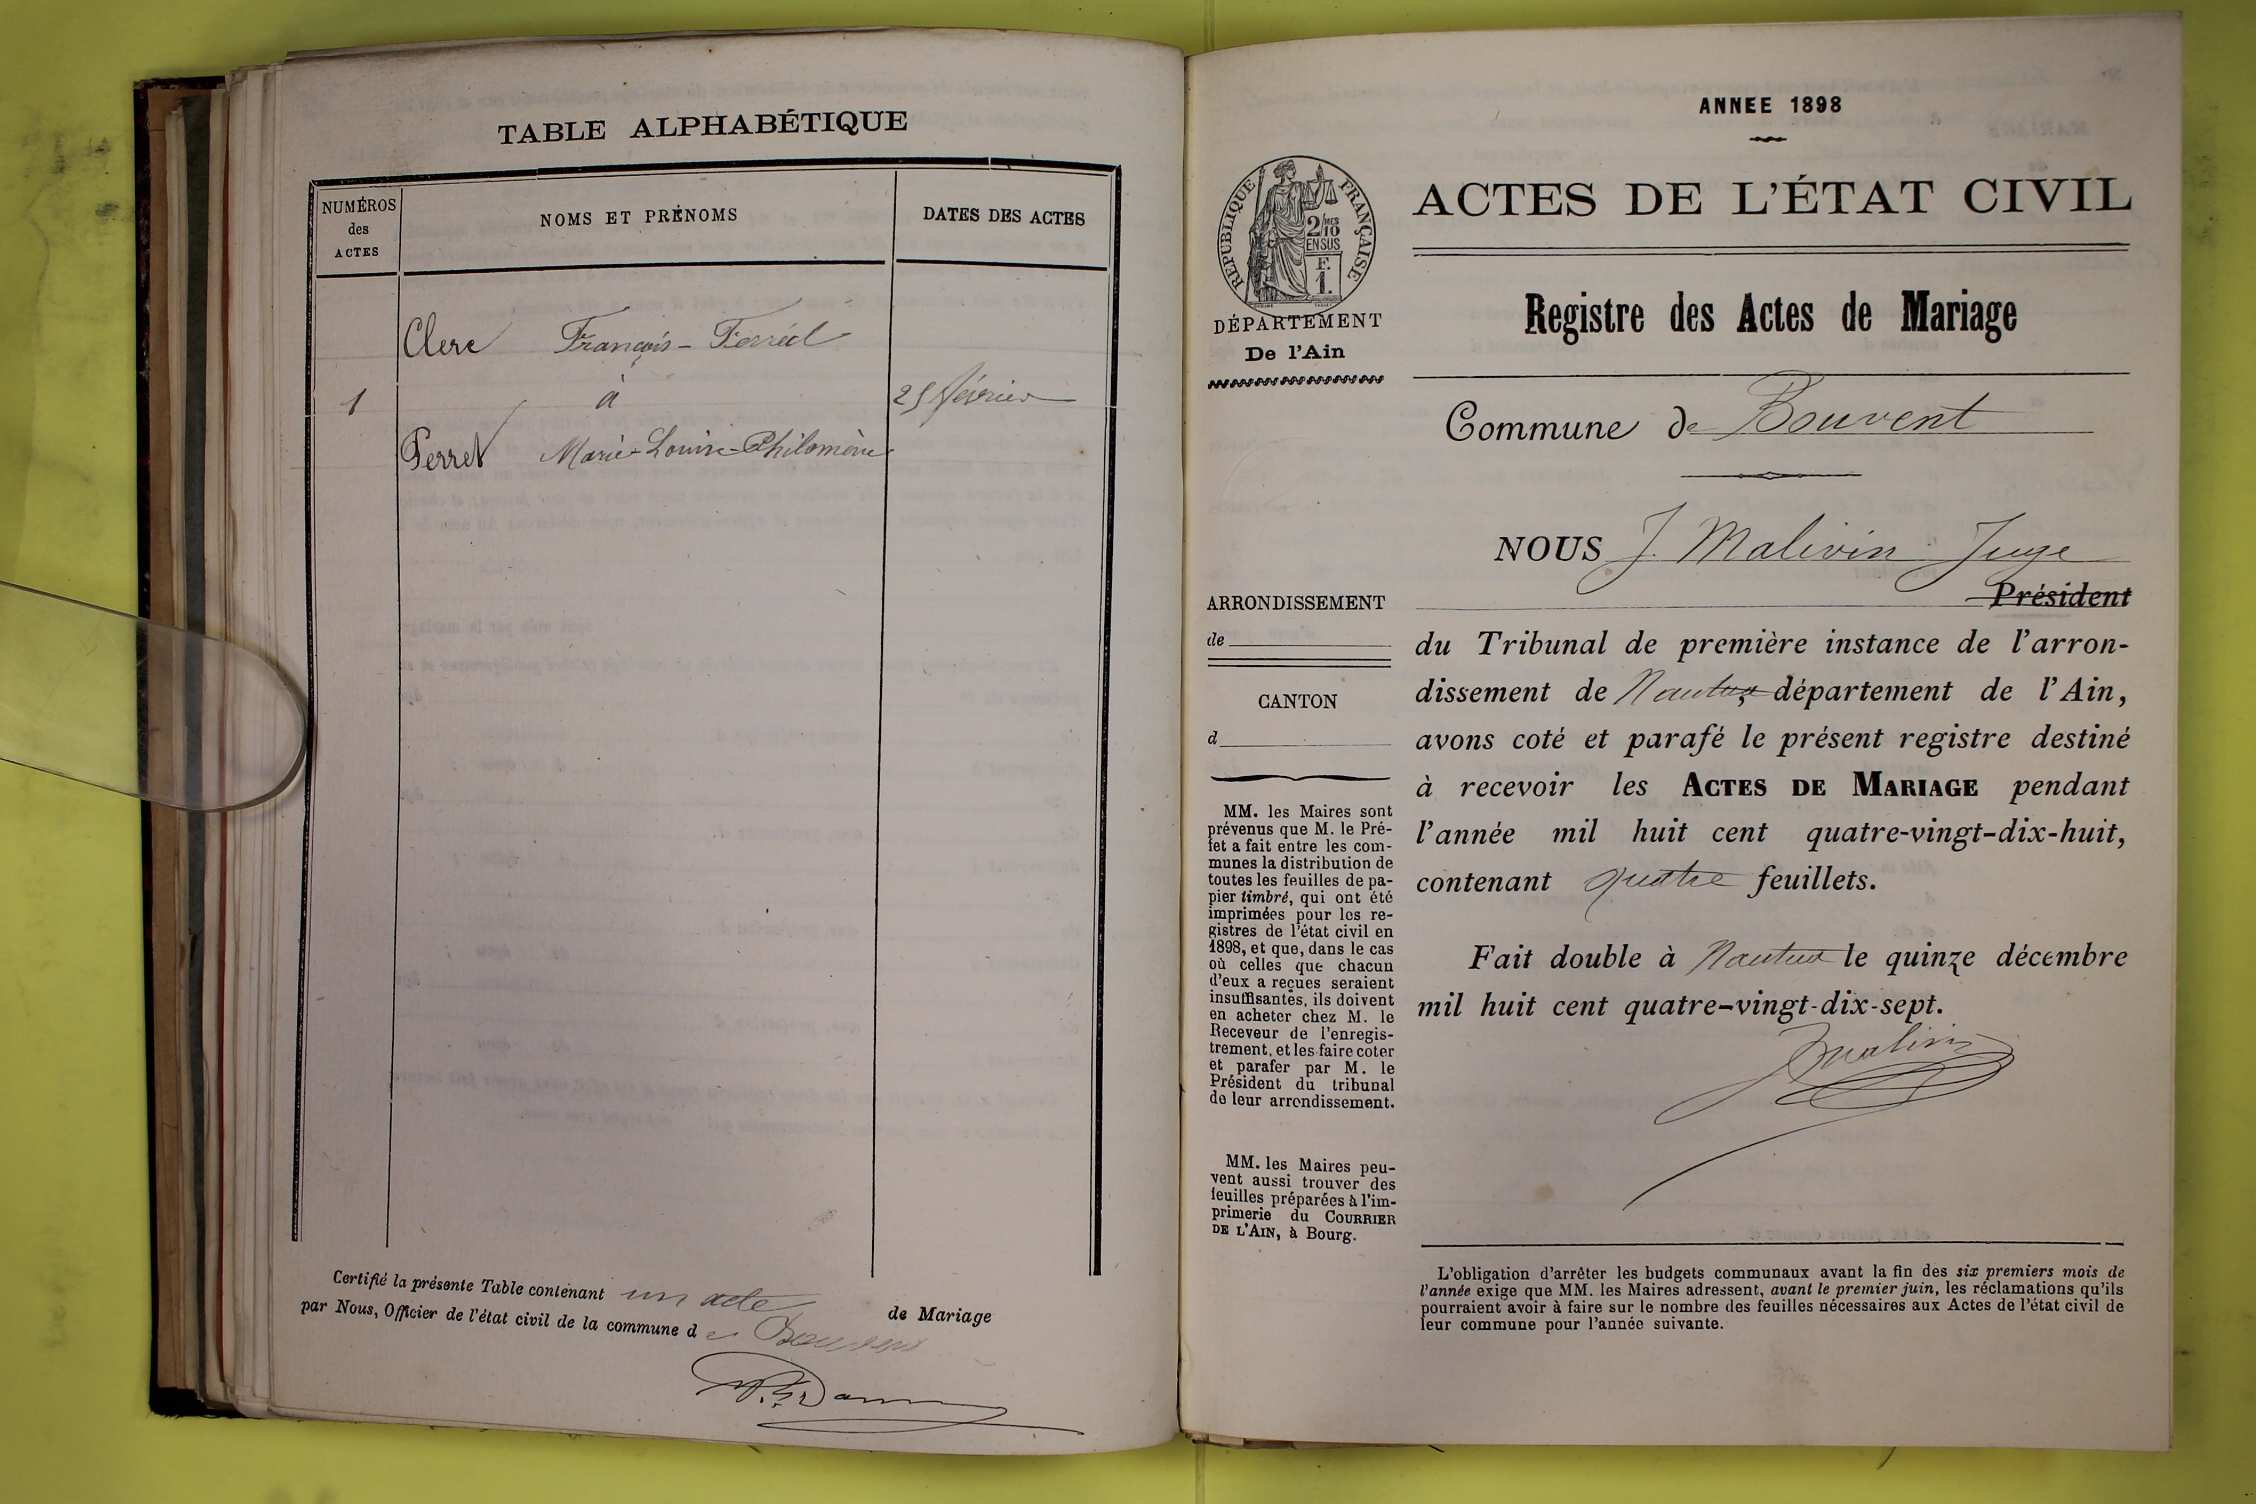 TABLE ALPHABÉTIQUE
NUMÉROS
des
ACTES
NOMS ET PRÉNOMS
DATES DES ACTES
Clerc François-Ferréol
1 à 25 février
Perret Marie-Louise-Philomène
Certifié la présente Table contenant un acte de Mariage
par Nous, Officier de l'état civil de la commune de Bouvent
ANNEE 1898
RÉPUBLIQUE FRANÇAISE
2/10 EN SUS
F. 1.
DÉPARTEMENT
De l'Ain
ARRONDISSEMENT
de
CANTON
d
MM. les Maires sont
prévenus que M. le Pré-
fet a fait entre les com-
munes la distribution de
toutes les feuilles de pa-
pier timbré, qui ont été
imprimées pour les re-
gistres de l'état civil en
1898, et que, dans le cas
où celles que chacun
d'eux a reçues seraient
insuffisantes, ils doivent
en acheter chez M. le
Receveur de l'enregis-
trement, et les faire coter
et parafer par M. le
Président du tribunal
de leur arrondissement.
MM. les Maires peu-
vent aussi trouver des
feuilles préparées à l'im-
primerie du COURRIER
DE L'AIN, à Bourg.
ACTES DE L'ÉTAT CIVIL
Registre des Actes de Mariage
Commune de Bouvent
NOUS J. Malivin Juge
Président
du Tribunal de première instance de l'arron-
dissement de Nantua, département de l'Ain,
avons coté et parafé le présent registre destiné
à recevoir les ACTES DE MARIAGE pendant
l'année mil huit cent quatre-vingt-dix-huit,
contenant quatre feuillets.
Fait double à Nantua le quinze décembre
mil huit cent quatre-vingt-dix-sept.
JMalivin
L'obligation d'arrêter les budgets communaux avant la fin des six premiers mois de
l'année exige que MM. les Maires adressent, avant le premier juin, les réclamations qu'ils
pourraient avoir à faire sur le nombre des feuilles nécessaires aux Actes de l'état civil de
leur commune pour l'année suivante.